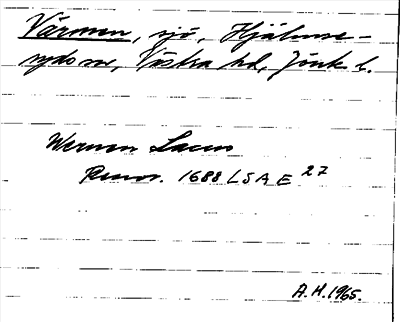 Värmen, sjö, Hjälmse-
ryds sn, Västra hd, Jönk. l.
Wermen Lacus
Renov. 1688 LSA E 27
A.H. 1965.